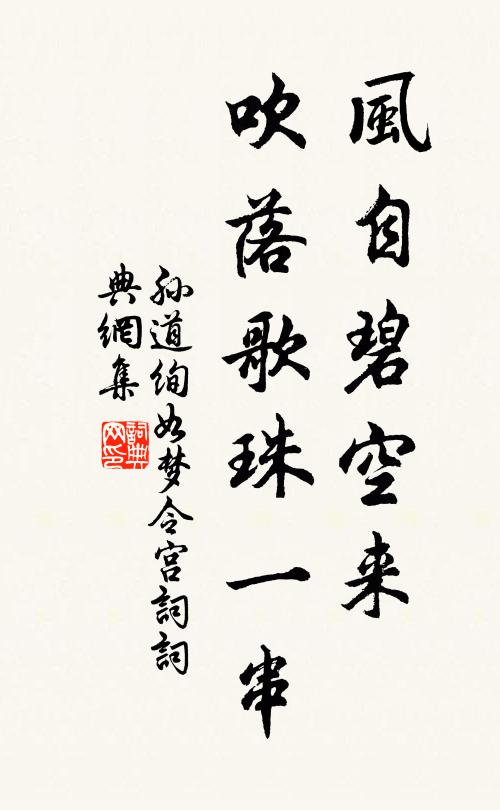 風自碧空来
吹落歌珠一串
孙道绚如梦令宫詞詞
典網集
詞典
网印